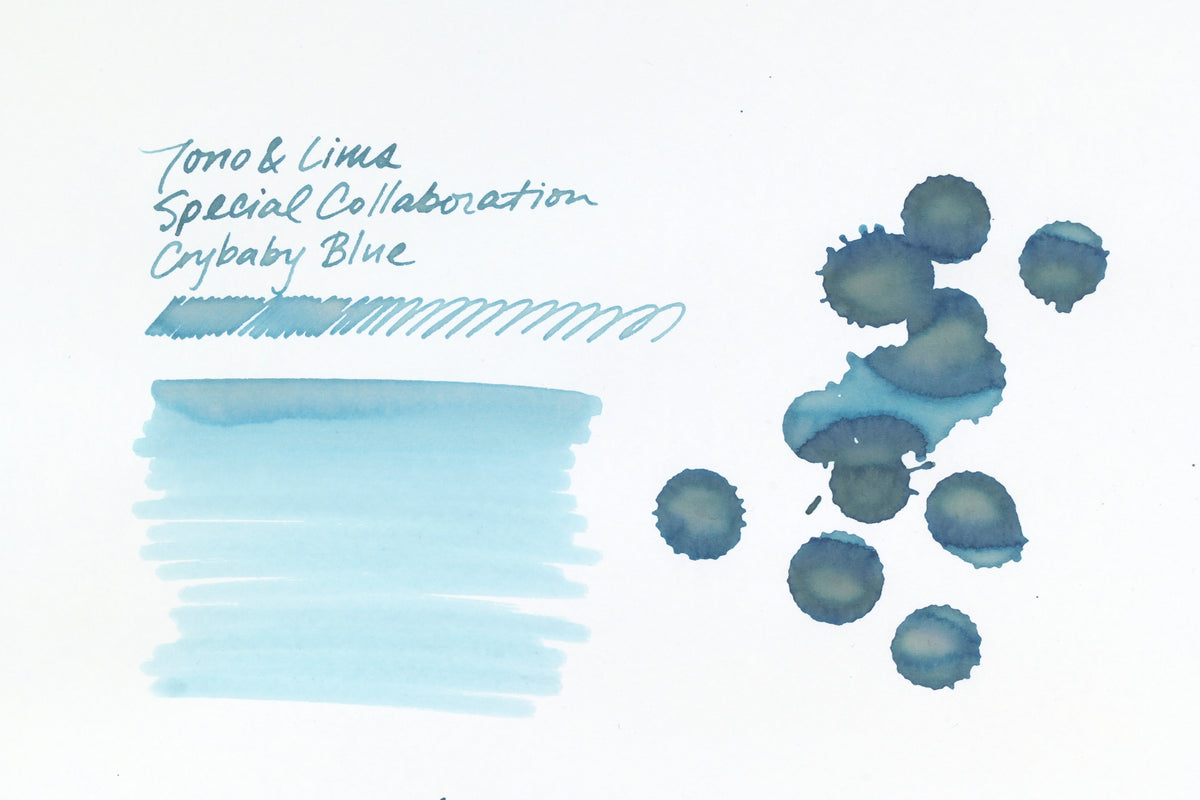 Tono & Lims
Special Collaboration
Crybaby Blue